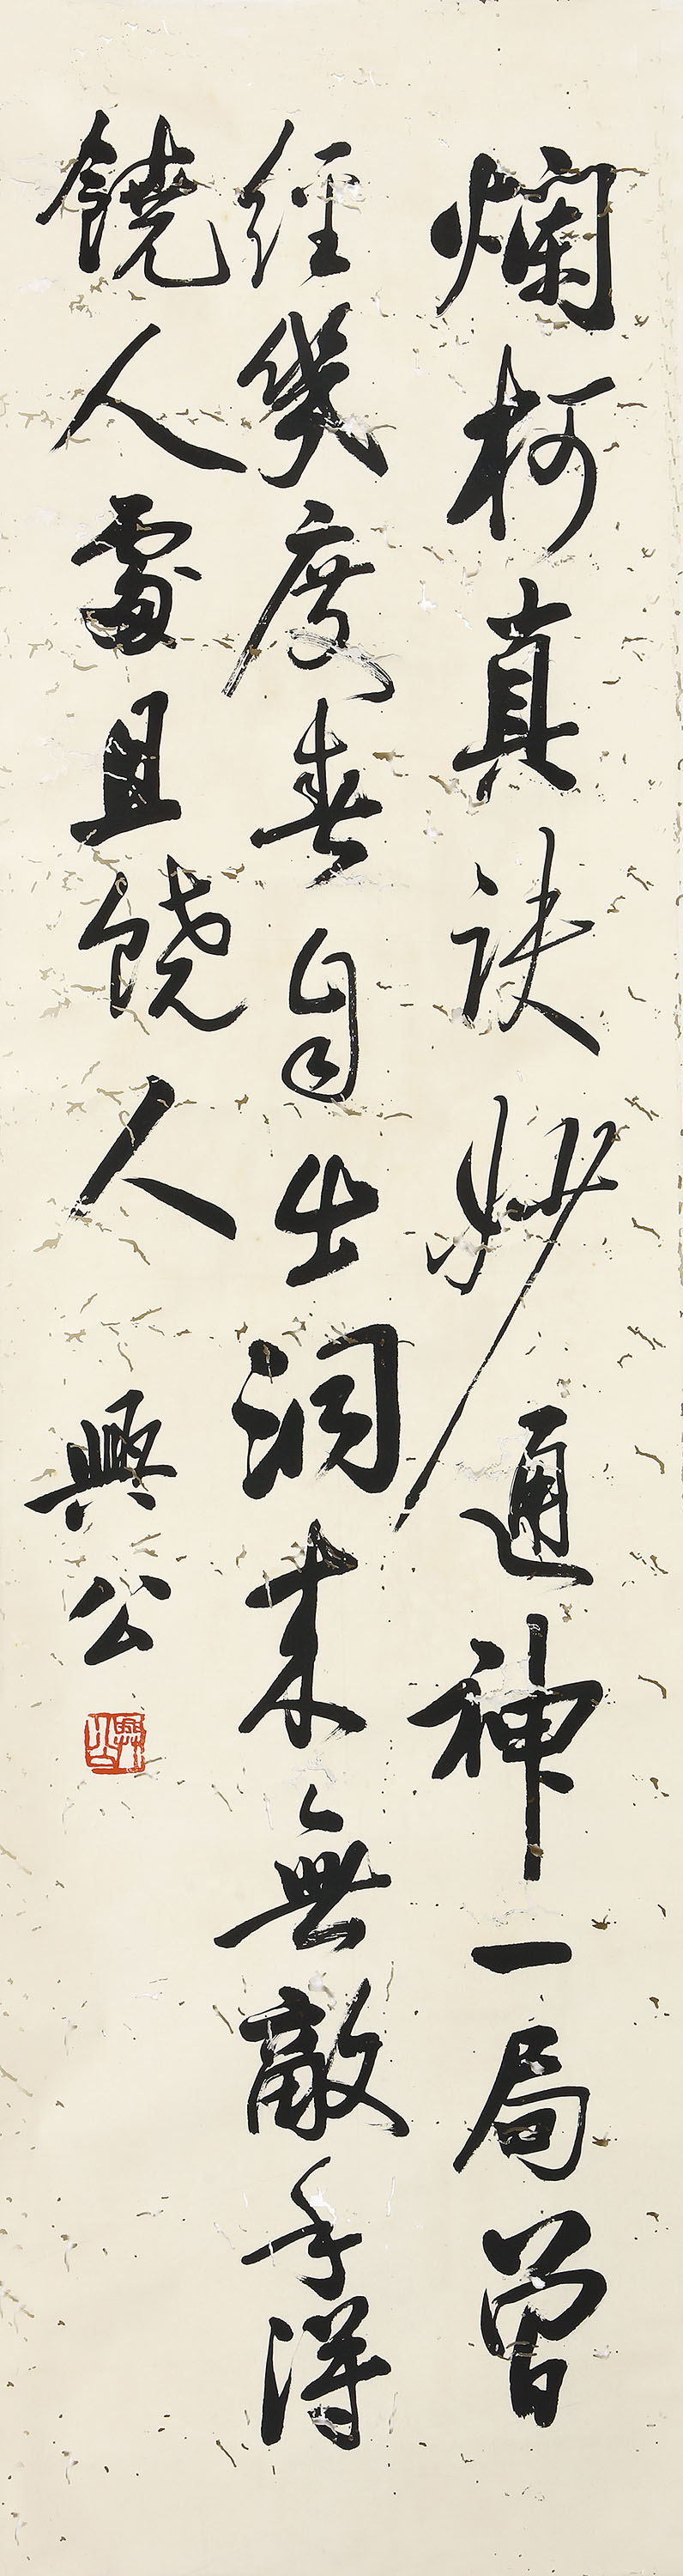 爛柯真訣妙通神一局曾
經幾度春自出洞来無敵手得
饒人處且饒人
興公
興公